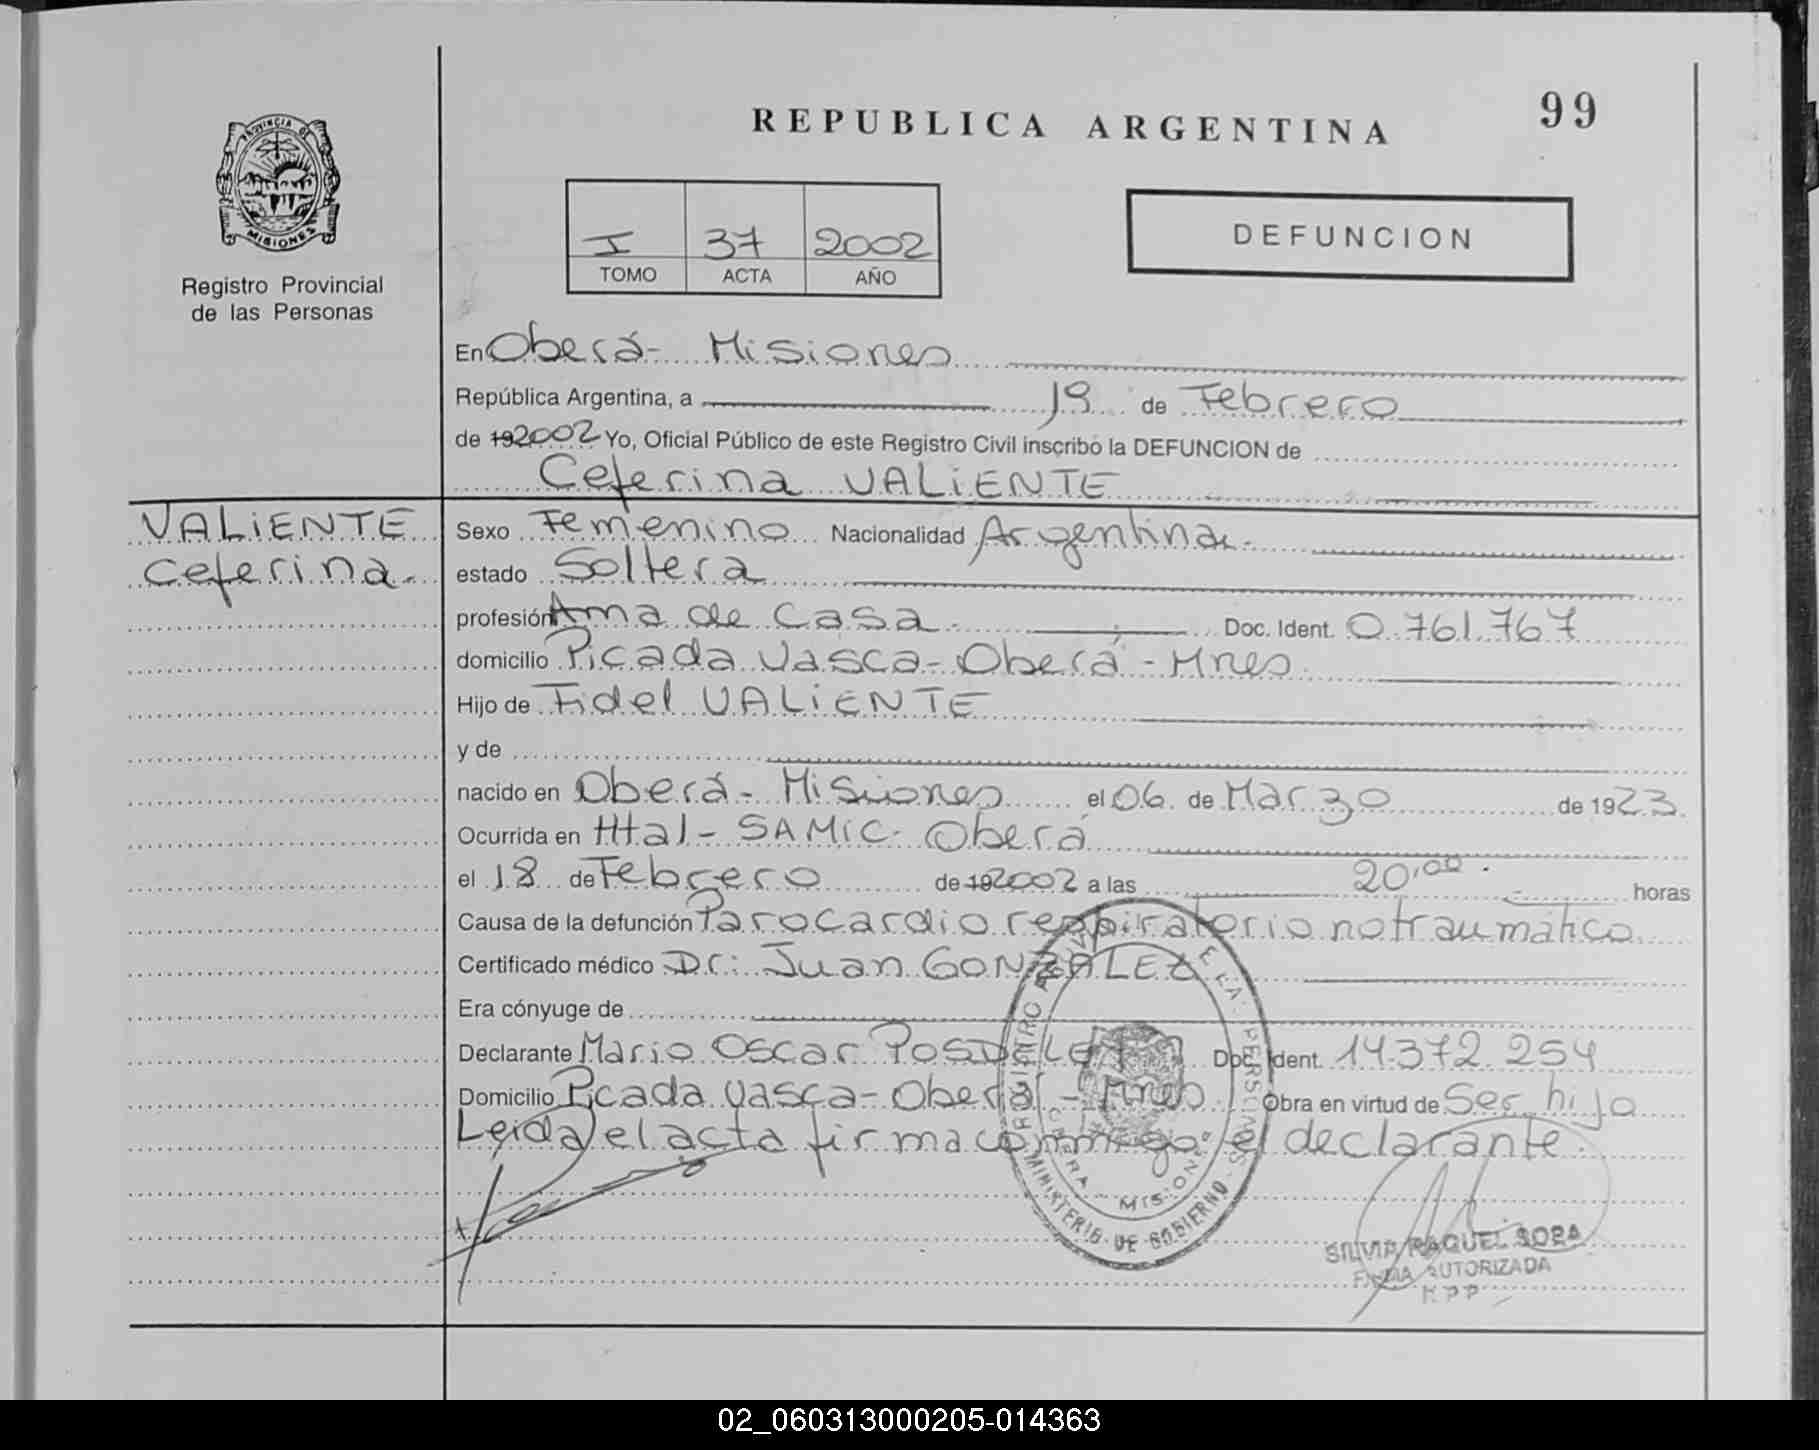 REPUBLICA ARGENTINA
99
PROVINCIA DE
MISIONES
Registro Provincial
de las Personas
I 37 2002
TOMO ACTA AÑO
DEFUNCION
En Oberá- Misiones
República Argentina, a 19 de Febrero
de 192002 Yo, Oficial Público de este Registro Civil inscribo la DEFUNCION de
Ceferina VALiENTE
VALiENTE
Ceferina.
Sexo Femenino Nacionalidad Argentina.
estado Soltera
profesión Ama de casa. Doc. Ident. 0.761.767
domicilio Picada Vasca- Oberá - Mnes
Hijo de Fidel VALiENTE
y de
nacido en Oberá- Misiones el 06 de Marzo de 1923.
Ocurrida en Htal- SAMIC. Oberá
el 18 de Febrero de 192002 a las 20,00. horas
Causa de la defunción Parocardio respiratorio no traumático
Certificado médico Dr: Juan GONZALEZ
Era cónyuge de
Declarante Mario Oscar Doc. Ident. 14.372.254
Domicilio Picada Vasca- Oberá - Mnes Obra en virtud de Ser hijo
Leida el acta firma conmigo el declarante.
MINISTERIO DE GOBIERNO
MISIONES
SILVIA RAQUEL SOSA
FIRMA AUTORIZADA
RPP
02_060313000205-014363